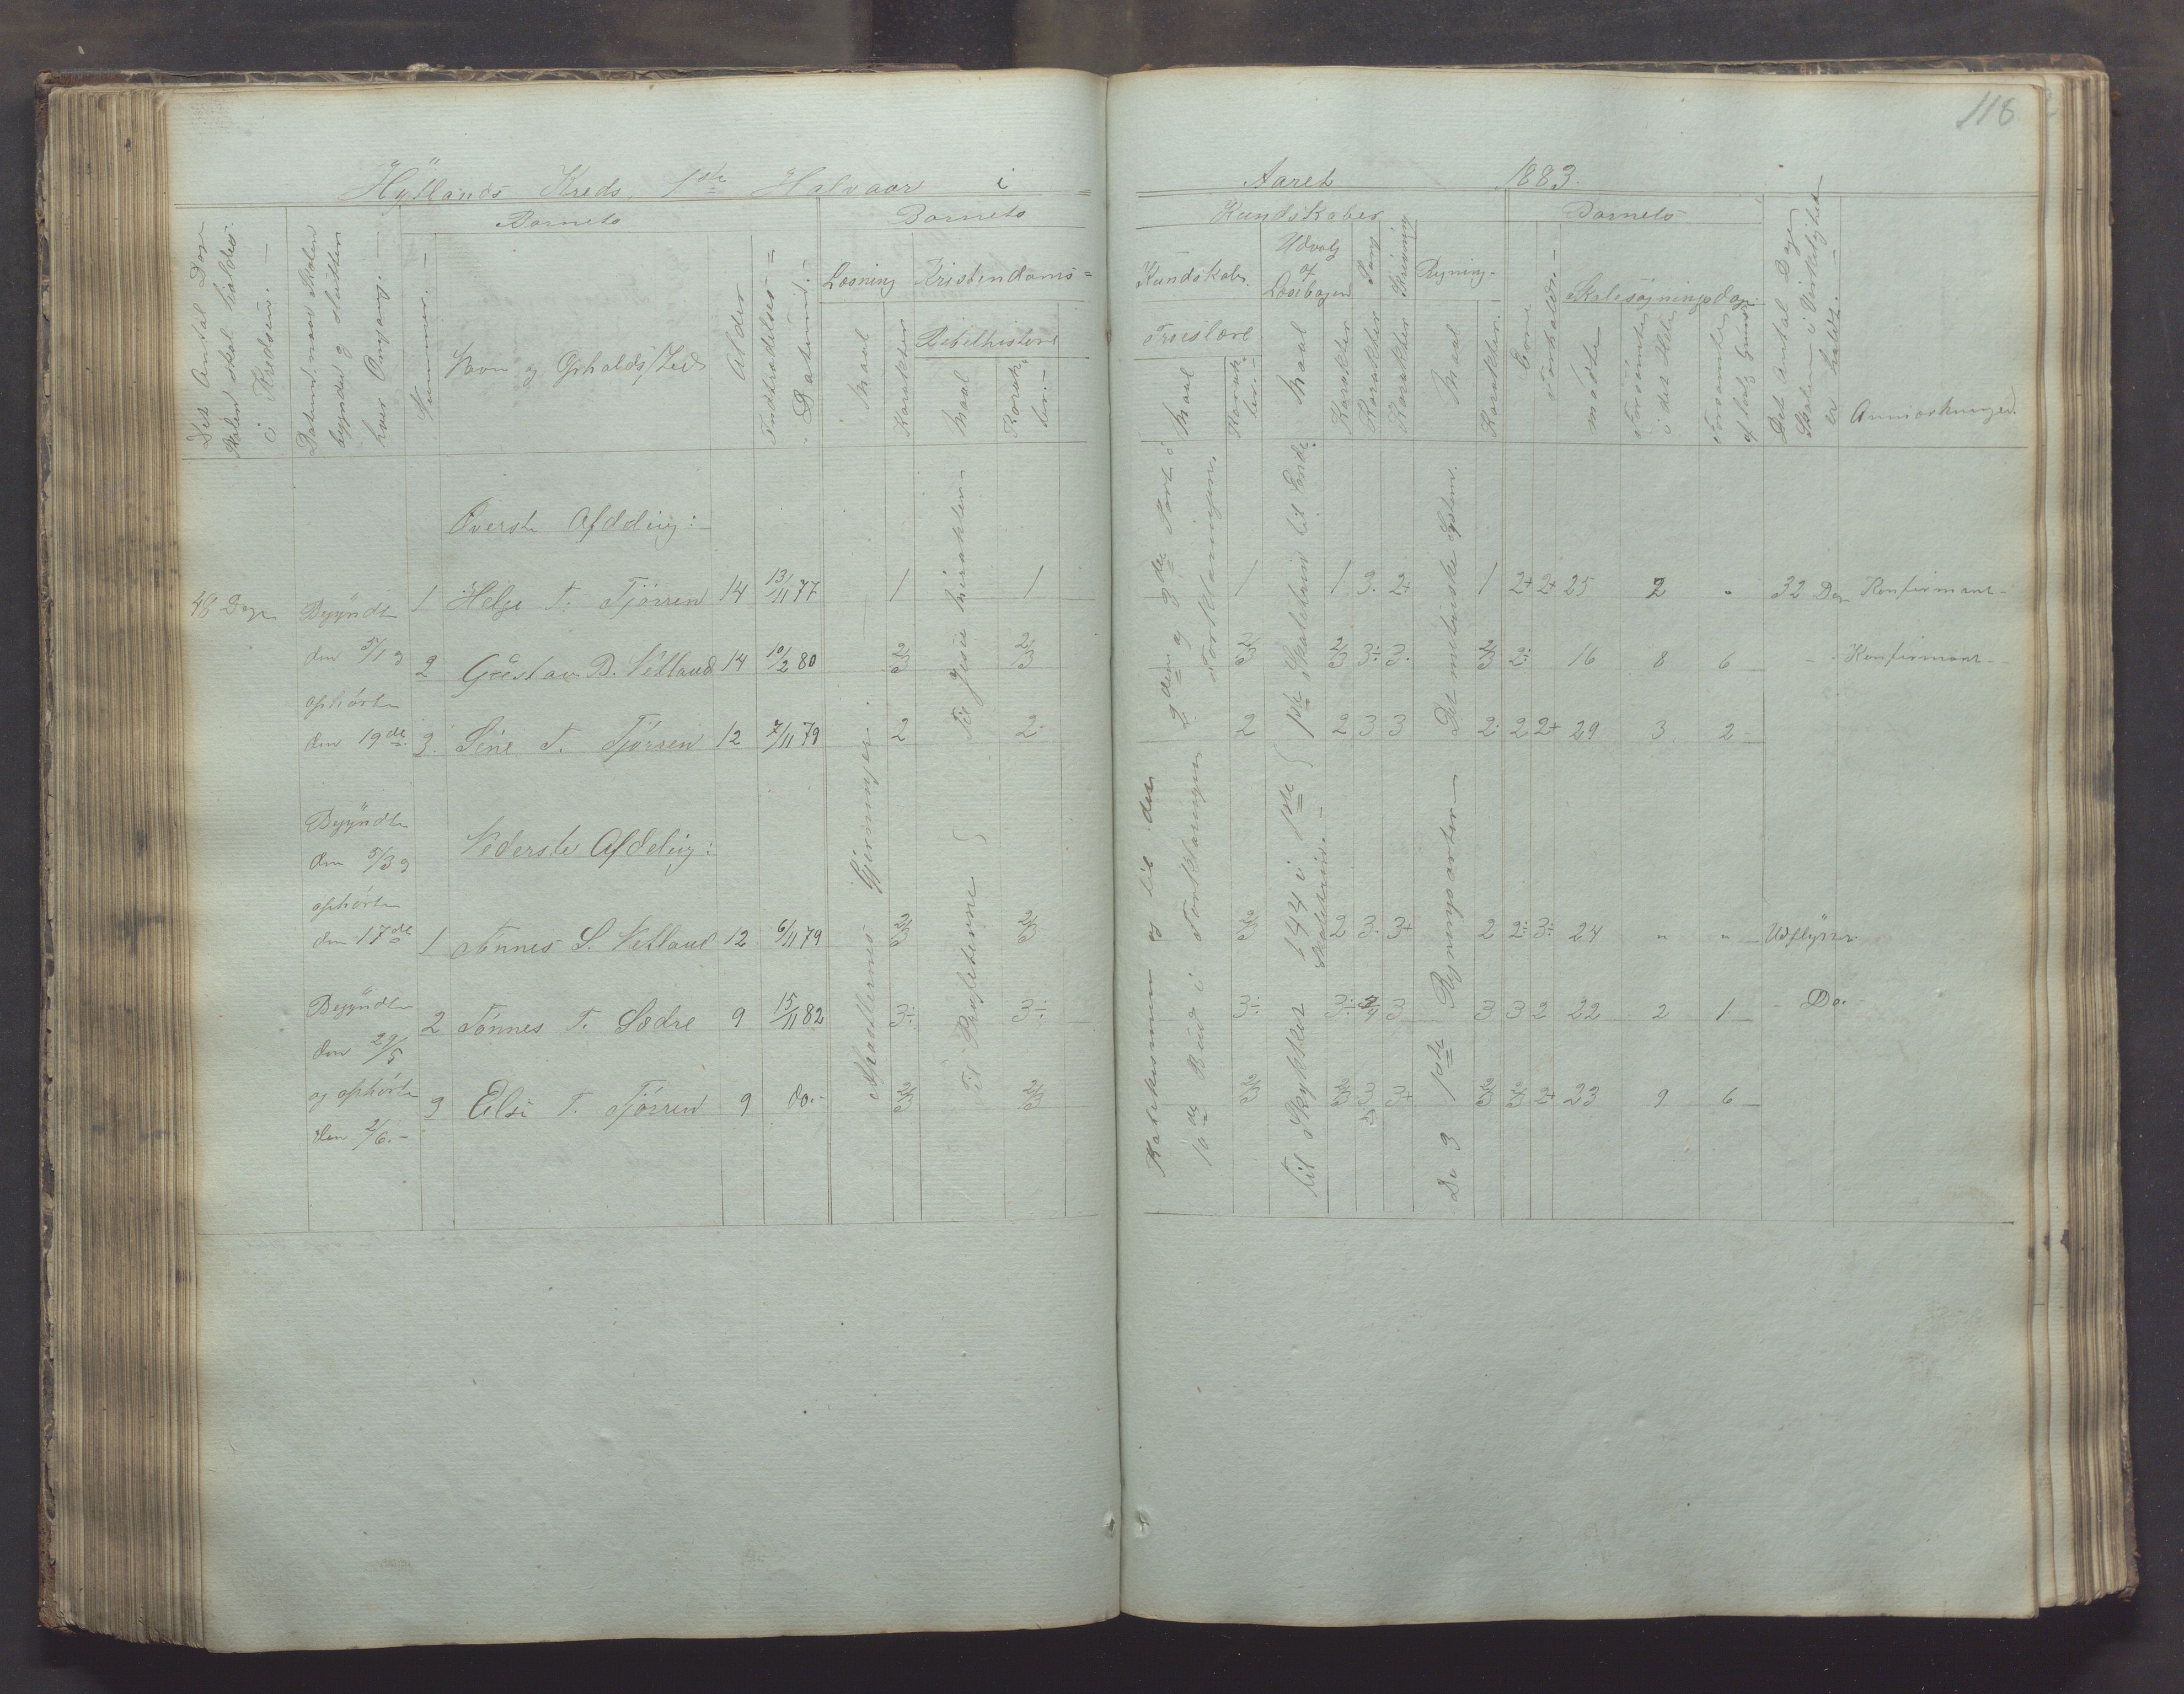 118
Hÿllands Kreds, 1ste Halvaar i
Aaret 1883.
Det Antal Dage
Skolen skal holdes
i Kredsen. —
Datum, naar Skolen
begyndte og sluttede
hver Omgang. —
Barnets
Nummer. —
Navn og Opholds/Sted
Alder
Indtrædelses =
Datum. —
Barnets
Læsning
Maal
Karakter
Kristendoms =
Bibelhistorie
Maal
Karak-
ter. —
Kundskaber
Kundskaber.
Troeslære
Maal
Karak-
ter. —
Udvalg
af
Læsebogen
Maal
Karakter
Sang
Karakter
Skrivning
Karakter
Regning. -
Maal
Karakter.
Barnets
Evne
Forholde. —
Skolesøgningsdage
mødte
Forsømte
i det Hele
Forsømte
af lovl. Grund
Det Antal Dage
Skolen i Virkelighed
er holdt. —
Anmærkninger.
Øverste Afdeling: —
48 Dage
Begÿndte
den 5/1 og
ophørte
den 19de
1 Helge T. Tjörsen 14 13/11 77 1 1 1 1 3. 2+ 1 2+ 2+ 25 2 " 32 Dage Konfirmant —
2 Gustav B. Netland 14 10/2 80 2/3 2/3 2/3 2/3 3÷ 3. 2/3 2÷ 16 8 6 — Konfirmant —
3. Sine T. Tjörsen 12 7/11 79 2 2 2 2 3 3 2 2 2+ 29 3 2
Til Jesu mirakler
2den og 3die Part i
Forklaringen.
1ste Skoletrin til Ende
Det metriske System.
Begÿndte
den 5/3 og
ophørte
den 17de
Nederste Afdeling:
1 Tönnes S. Netland 12 6/11 79 2/3 2/3 2/3 2 3. 3+ 2 2÷ 3÷ 24 " " Udflÿttet.
Begÿndte
den 29/5
og ophørte
den 2/6. —
2 Tönnes T. Sædre 9 15/11 82 3÷ 3÷ 3÷ 3÷ 3/4 3 3 3 2 22 2 1 — Do.
3 Elsi T. Tjörsen 9 do. - 2/3 2/3 2/3 2/3 3 3+ 2/3 2/3 2+ 23 9 6
Apostlernes Gjerninger.
Til Profeterne
Katekismen og til det
10de Bud i Forklaringen
Til Stykket 144 i 1ste
Skoletrin. —
De 3 1ste Regningsarter —